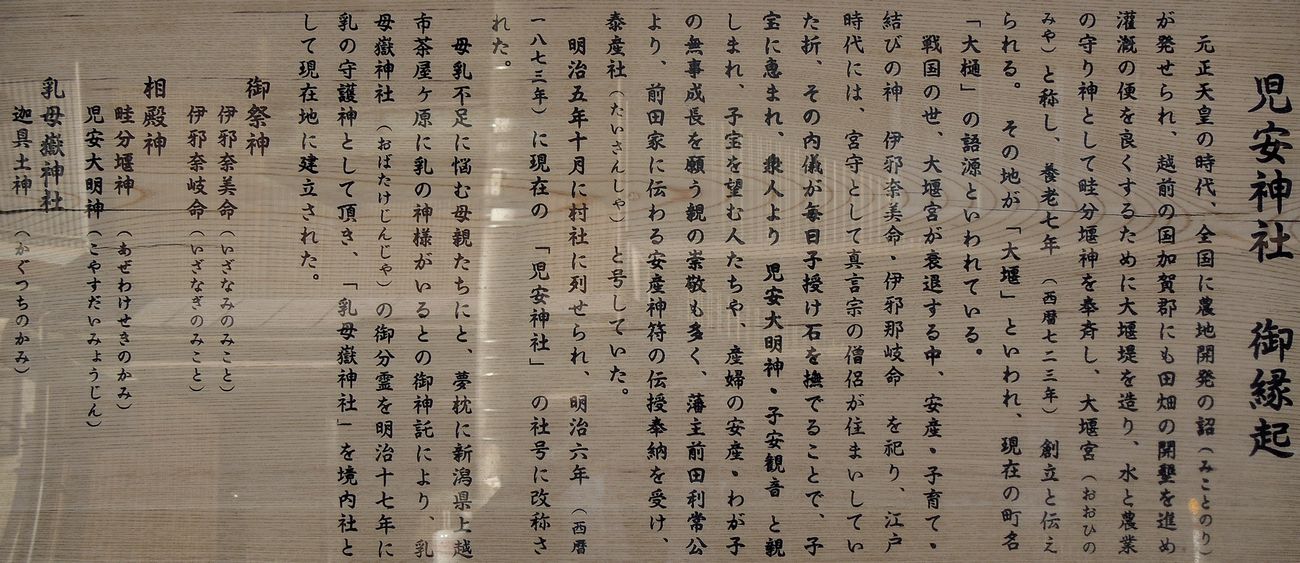 児安神社　御縁起
元正天皇の時代、全国に農地開発の詔（みことのり）
が発せられ、越前の国加賀郡にも田畑の開墾を進め
灌漑の便を良くするために大堰堤を造り、水と農業
の守り神として畦分堰神を奉斉し、大堰宮（おおひの
みや）と称し、養老七年（西暦七二三年）創立と伝え
られる。その地が「大堰」といわれ、現在の町名
「大樋」の語源といわれている。
戦国の世、大堰宮が衰退する中、安産・子育て・
結びの神　伊邪奈美命・伊邪那岐命　を祀り、江戸
時代には、宮守として真言宗の僧侶が住まいしてい
た折、その内儀が毎日子授け石を撫でることで、子
宝に恵まれ、衆人より 児安大明神・子安観音 と親
しまれ、子宝を望む人たちや、産婦の安産・わが子
の無事成長を願う親の崇敬も多く、藩主前田利常公
より、前田家に伝わる安産神符の伝授奉納を受け、
泰産社（たいさんしゃ）と号していた。
明治五年十月に村社に列せられ、明治六年（西暦
一八七三年）に現在の「児安神社」の社号に改称さ
れた。
母乳不足に悩む母親たちにと、夢枕に新潟県上越
市茶屋ヶ原に乳の神様がいるとの御神託により、乳
母嶽神社（おばたけじんじゃ）の御分霊を明治十七年に
乳の守護神として頂き、「乳母嶽神社」を境内社と
して現在地に建立された。
御祭神
伊邪奈美命（いざなみのみこと）
伊邪奈岐命（いざなぎのみこと）
相殿神
畦分堰神（あぜわけせきのかみ）
児安大明神（こやすだいみょうじん）
乳母嶽神社
迦具土神（かぐつちのかみ）